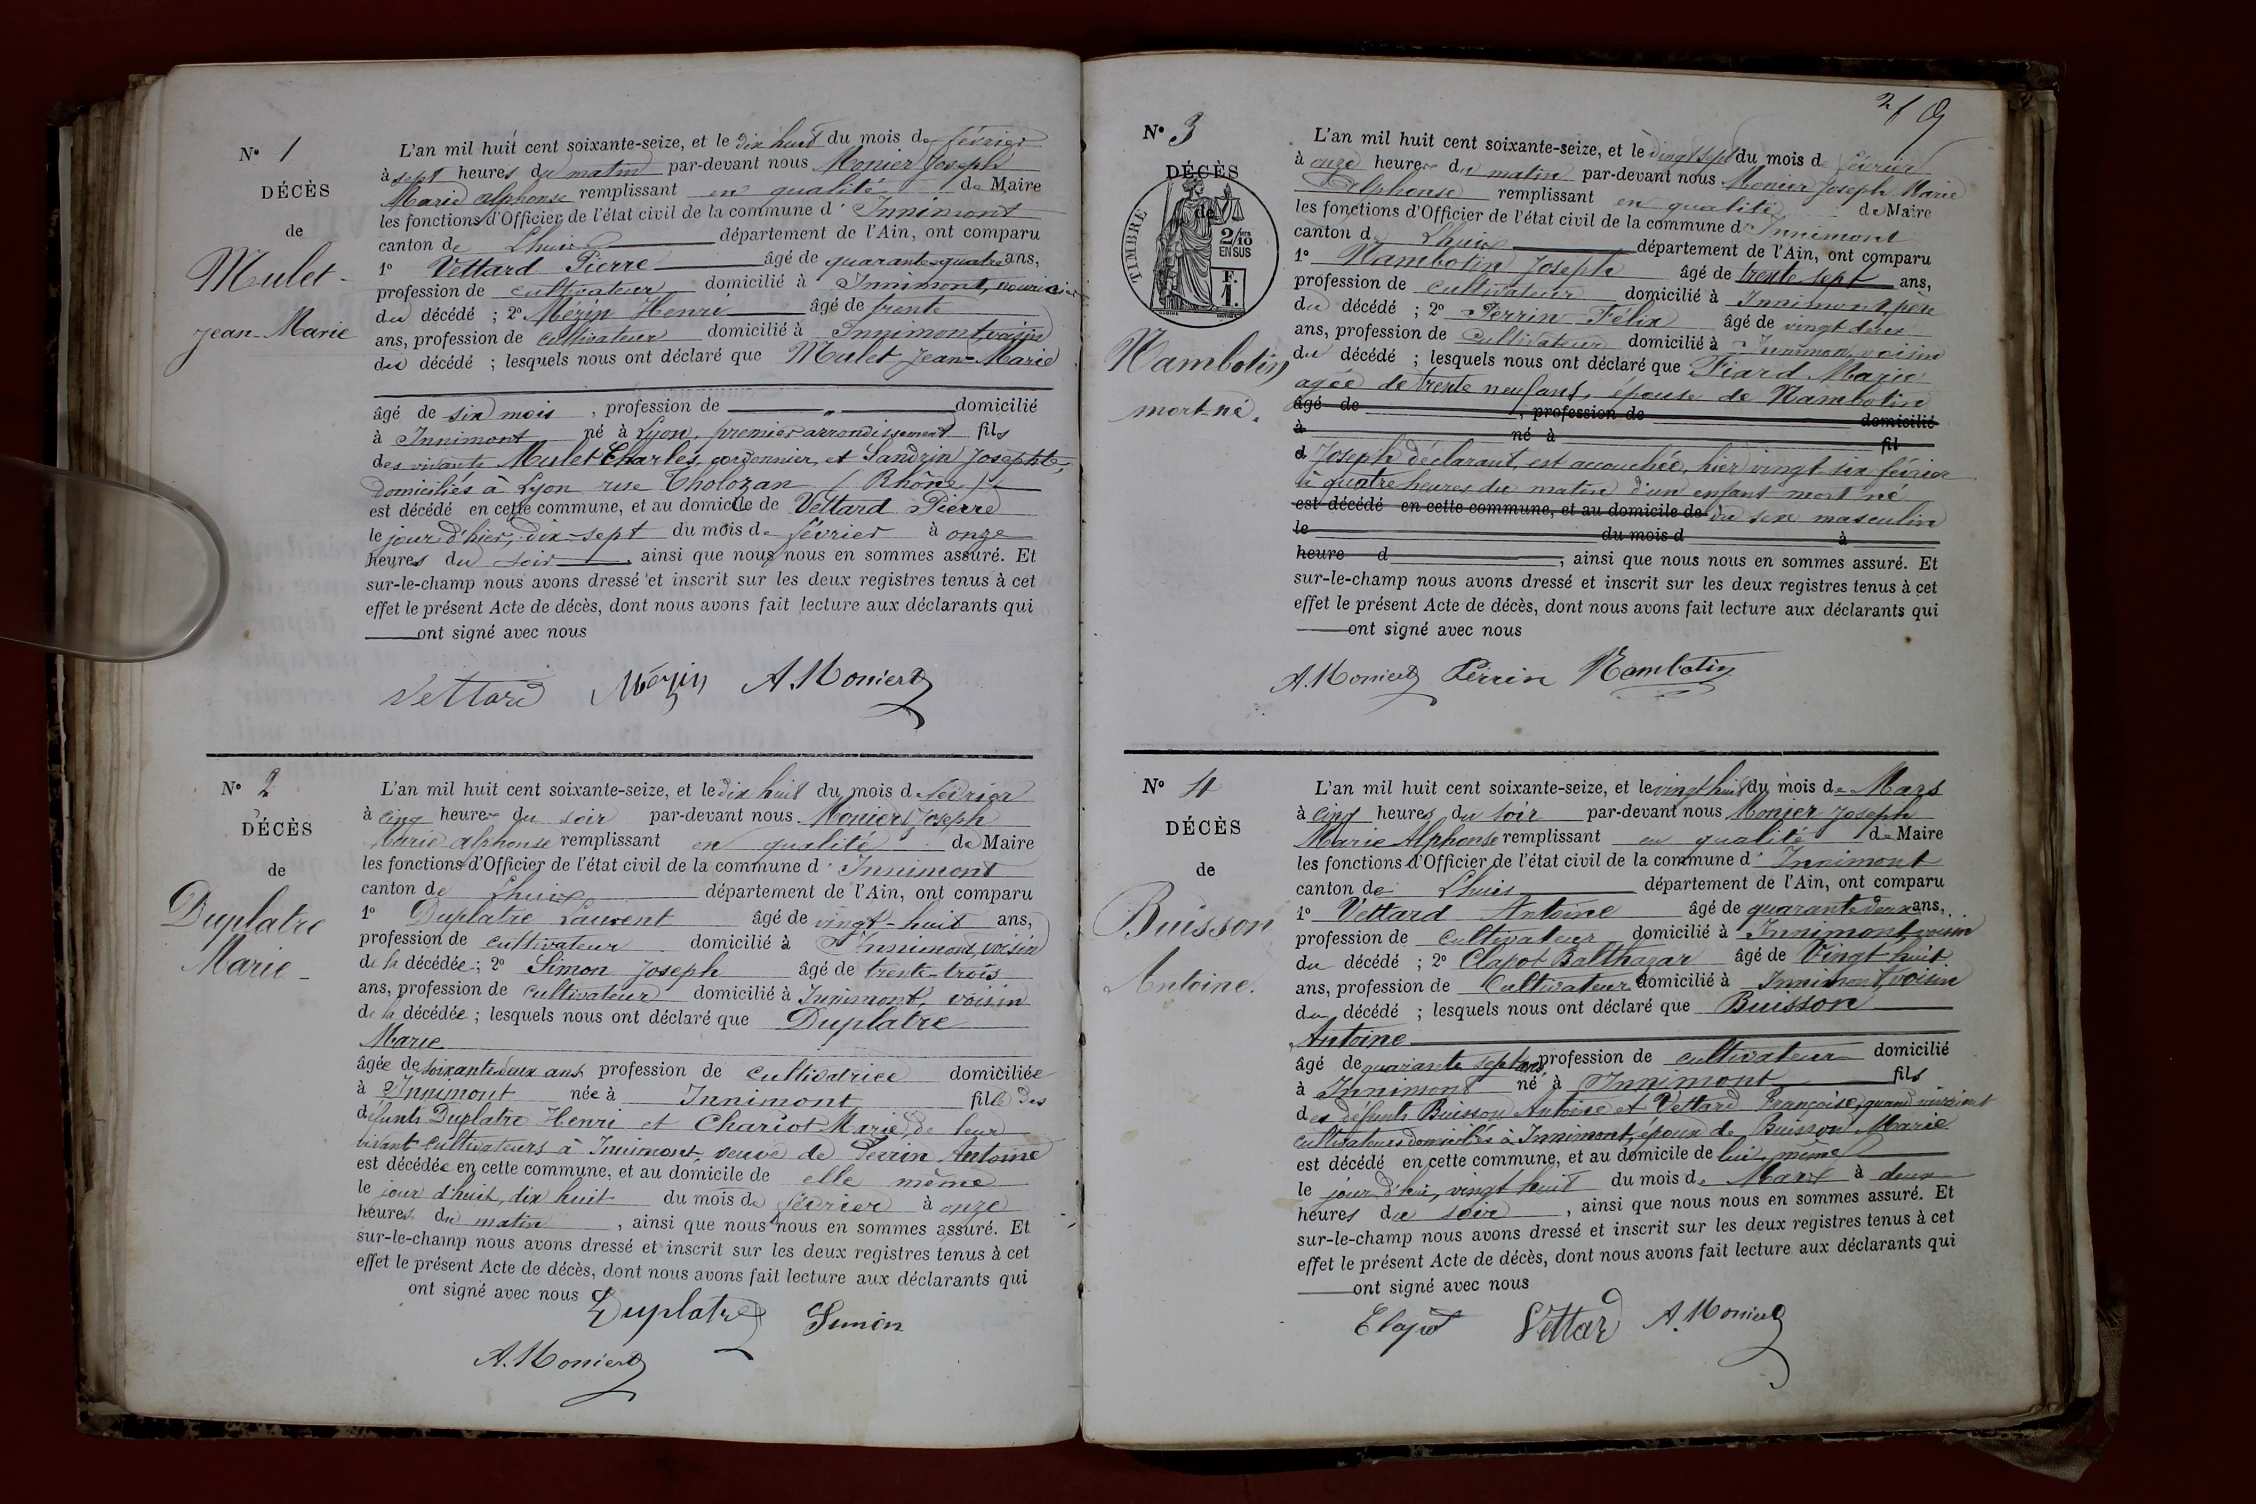 N° 1
DÉCÈS
de
Mulet
Jean-Marie
L'an mil huit cent soixante-seize, et le dix huit du mois de février
à sept heures du matin par-devant nous Monier Joseph
Marie Alphonse remplissant en qualité de Maire
les fonctions d'Officier de l'état civil de la commune d'Innimont
canton de Lhuis département de l'Ain, ont comparu
1° Vettard Pierre âgé de quarante-quatre ans,
profession de cultivateur domicilié à Innimont, nourricier
du décédé ; 2° Mézin Henri âgé de trente
ans, profession de cultivateur domicilié à Innimont, voisin
du décédé ; lesquels nous ont déclaré que Mulet Jean-Marie
âgé de six mois, profession de " domicilié
à Innimont né à Lyon, premier arrondissement fils
des vivants Mulet Charles, cordonnier, et Sandrin Josephte,
domiciliés à Lyon rue Tholozan (Rhône)
est décédé en cette commune, et au domicile de Vettard Pierre
le jour d'hier, dix-sept du mois de février à onze
heures du soir, ainsi que nous nous en sommes assuré. Et
sur-le-champ nous avons dressé et inscrit sur les deux registres tenus à cet
effet le présent Acte de décès, dont nous avons fait lecture aux déclarants qui
ont signé avec nous
Vettard Mézin A. Monier
N° 2
DÉCÈS
de
Duplatre
Marie
L'an mil huit cent soixante-seize, et le dix huit du mois d février
à cinq heures du soir par-devant nous Monier Joseph
Marie Alphonse remplissant en qualité de Maire
les fonctions d'Officier de l'état civil de la commune d'Innimont
canton de Lhuis département de l'Ain, ont comparu
1° Duplatre Laurent âgé de vingt-huit ans,
profession de cultivateur domicilié à Innimont, voisin
de la décédée ; 2° Simon Joseph âgé de trente-trois
ans, profession de cultivateur domicilié à Innimont, voisin
de la décédée ; lesquels nous ont déclaré que Duplatre
Marie
âgée de soixante deux ans profession de cultivatrice domiciliée
à Innimont née à Innimont fille des
défunts Duplatre Henri et Chariot Marie, de leur
vivant cultivateurs à Innimont, veuve de Perrin Antoine
est décédée en cette commune, et au domicile de elle même
le jour d'hui, dix huit du mois de février à onze
heures du matin, ainsi que nous nous en sommes assuré. Et
sur-le-champ nous avons dressé et inscrit sur les deux registres tenus à cet
effet le présent Acte de décès, dont nous avons fait lecture aux déclarants qui
ont signé avec nous
Duplatre Simon
A. Monier
219
N° 3
DÉCÈS
de
TIMBRE
2/10
EN SUS
F.
1.
Nambotin
mort né.
L'an mil huit cent soixante-seize, et le vingt sept du mois d février
à onze heures du matin par-devant nous Monier Joseph Marie
Alphonse remplissant en qualité de Maire
les fonctions d'Officier de l'état civil de la commune d'Innimont
canton d Lhuis département de l'Ain, ont comparu
1° Nambotin Joseph âgé de trente sept ans,
profession de cultivateur domicilié à Innimont, père
du décédé ; 2° Perrin Félix âgé de vingt deux
ans, profession de cultivateur domicilié à Innimon, voisin
du décédé ; lesquels nous ont déclaré que Fiard Marie
agée de trente neuf ans, épouse de Nambotin
âgé de , profession de domicilié
à né à fil
d Joseph déclarant, est accouchée, hier vingt six février
à quatre heures du matin d'un enfant mort né
est décédé en cette commune, et au domicile de du sexe masculin
le du mois d à
heure d , ainsi que nous nous en sommes assuré. Et
sur-le-champ nous avons dressé et inscrit sur les deux registres tenus à cet
effet le présent Acte de décès, dont nous avons fait lecture aux déclarants qui
ont signé avec nous
A. Monier Perrin Nambotin
N° 4
DÉCÈS
de
Buisson
Antoine.
L'an mil huit cent soixante-seize, et le vingt huit du mois de Mars
à cinq heures du soir par-devant nous Monier Joseph
Marie Alphonse remplissant en qualité de Maire
les fonctions d'Officier de l'état civil de la commune d'Innimont
canton de Lhuis département de l'Ain, ont comparu
1° Vettard Antoine âgé de quarante deux ans,
profession de cultivateur domicilié à Innimont, voisin
du décédé ; 2° Clapot Balthazar âgé de Vingt huit
ans, profession de Cultivateur domicilié à Innimont, voisin
du décédé ; lesquels nous ont déclaré que Buisson
Antoine
âgé de quarante sept ans, profession de cultivateur domicilié
à Innimont né à Innimont fils
des défunts Buisson Antoine et Vettard Françoise, quand vivaient
cultivateurs domiciliés à Innimont, époux de Buisson Marie
est décédé en cette commune, et au domicile de lui même
le jour d'hui, vingt huit du mois de Mars à deux
heures du soir, ainsi que nous nous en sommes assuré. Et
sur-le-champ nous avons dressé et inscrit sur les deux registres tenus à cet
effet le présent Acte de décès, dont nous avons fait lecture aux déclarants qui
ont signé avec nous
Clapot Vettard A. Monier